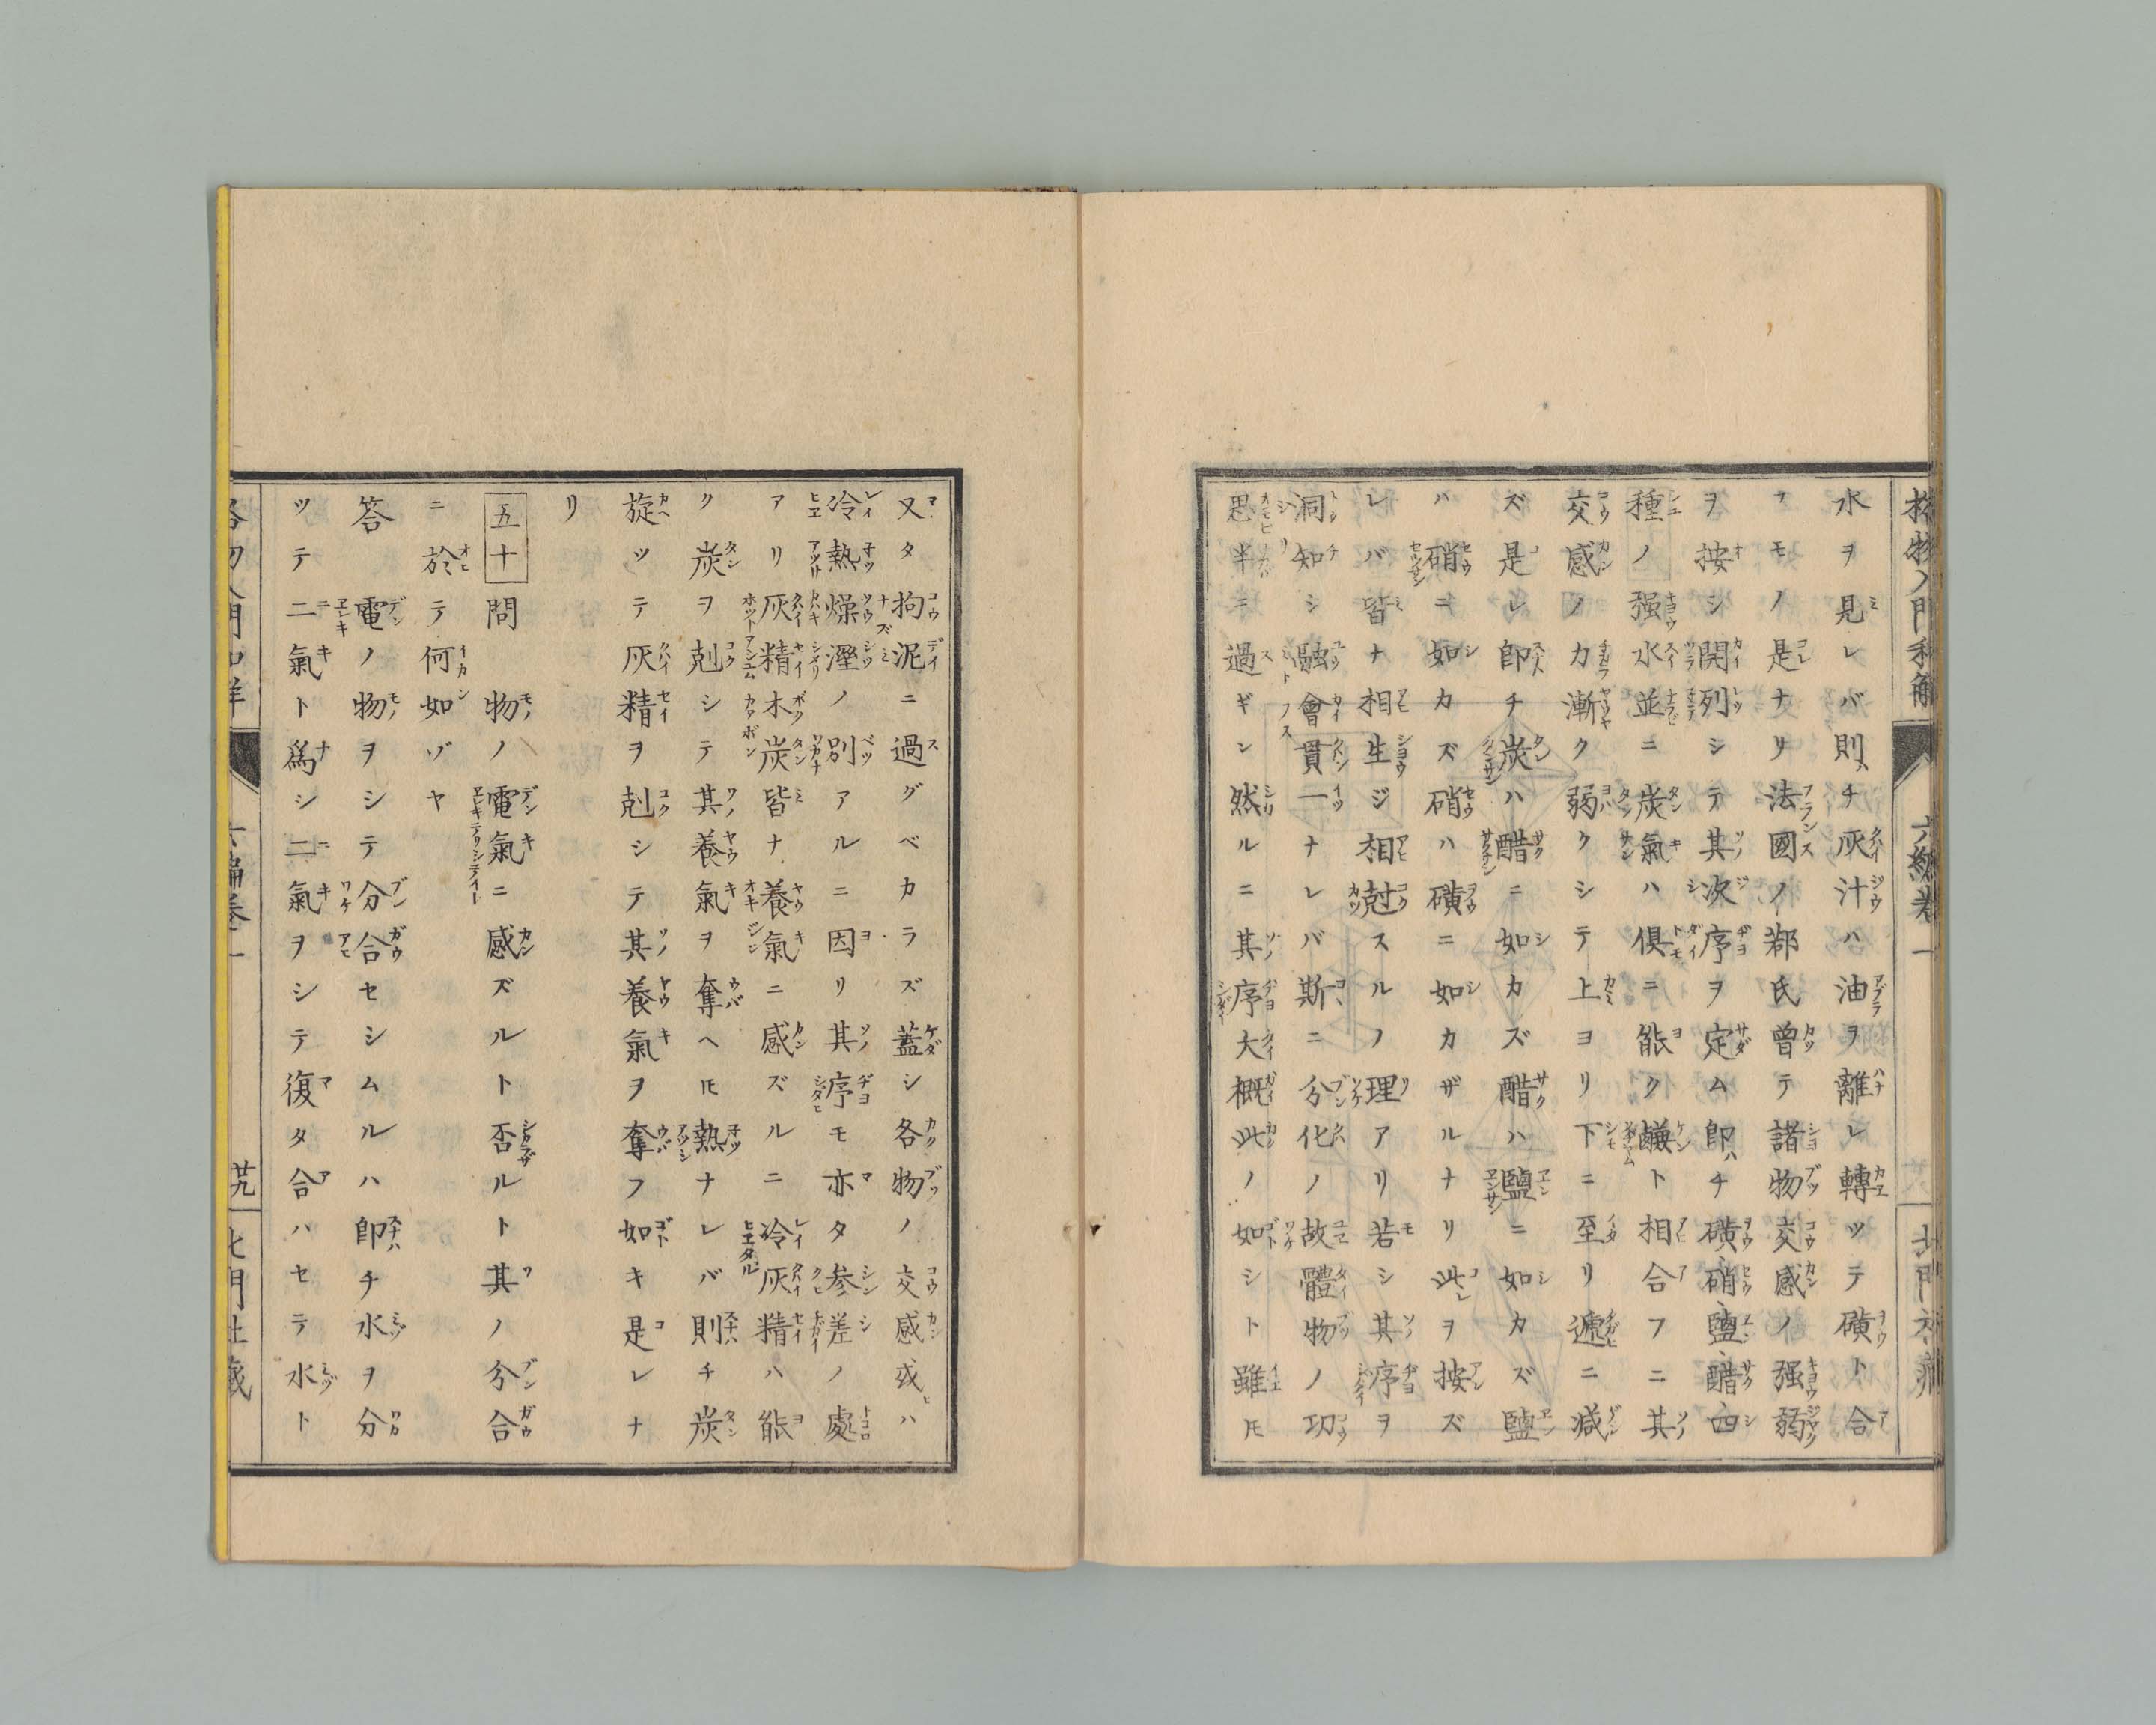 水ヲ見レバ則チ灰汁ハ油ヲ離レ轉ツテ磺ト合
フモノ是ナリ法國ノ鄀氏曾テ諸物交感ノ强弱
ヲ按シ開列シテ其次序ヲ定ム即チ磺、硝、鹽、醋、四
種ノ强水並ニ炭氣ハ俱ニ能ク鹼ト相合フニ其
交感ノカ漸ク弱クシテ上ヨリ下ニ至リ遞ニ減
ズ是レ即チ炭ハ醋ニ如カズ醋ハ鹽ニ如カズ鹽
ハ硝ニ如カズ硝ハ磺ニ如カザルナリ此ヲ按ズ
レバ皆ナ相生ジ相尅スルノ理アリ若シ其序ヲ
洞知シ融會貫一ナレバ斯ニ分化ノ故體物ノ功
思半ニ過ギン然ルニ其序大概此ノ如シト雖𪜈
又タ拘泥ニ過グベカラズ蓋シ各物ノ交感或ハ
冷熱燥溼ノ別アルニ因リ其序モ亦タ參差ノ處
アリ灰精木炭皆ナ養氣ニ感ズルニ冷灰精ハ能
ク炭ヲ剋シテ其養氣ヲ奪ヘ𪜈熱ナレバ則チ炭
旋ツテ灰精ヲ剋シテ其養氣ヲ奪フ如キ是レナ
リ
五十 問 物ノ電氣ニ感ズルト否ルト其ノ分合
ニ於テ何如ゾヤ
答 電ノ物ヲシテ分合セシムルハ即チ水ヲ分
ツテ二氣ト爲シ二氣ヲシテ復タ合ハセテ水ト